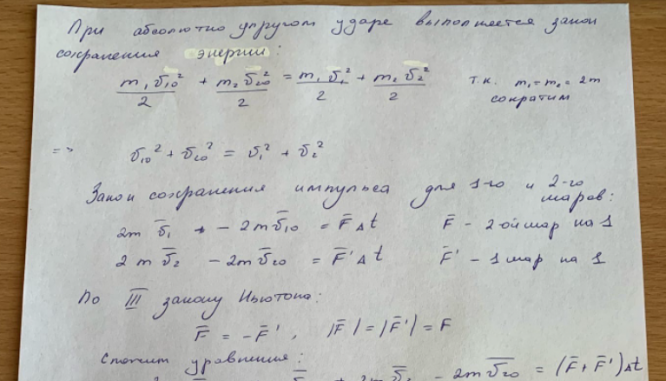 При абсолютно упругом ударе выполняется закон
сохранения энергии:
m₁v̄₁₀²/2 + m₂v̄₂₀²/2 = m₁v̄₁²/2 + m₂v̄₂²/2 т.к. m₁=m₂=2m
сократим
=> v₁₀² + v₂₀² = v₁² + v₂²
Закон сохранения импульса для 1-го и 2-го
шаров:
2m v̄₁ - 2m v̄₁₀ = F̄ Δt F̄ - 2ой шар на 1
2m v̄₂ - 2m v̄₂₀ = F̄' Δt F̄' - 1 шар на 1
По III закону Ньютона:
F̄ = -F̄', |F̄| = |F̄'| = F
Сложим уравнения:
- 2m v̄₂₀ = (F̄ + F̄')Δt